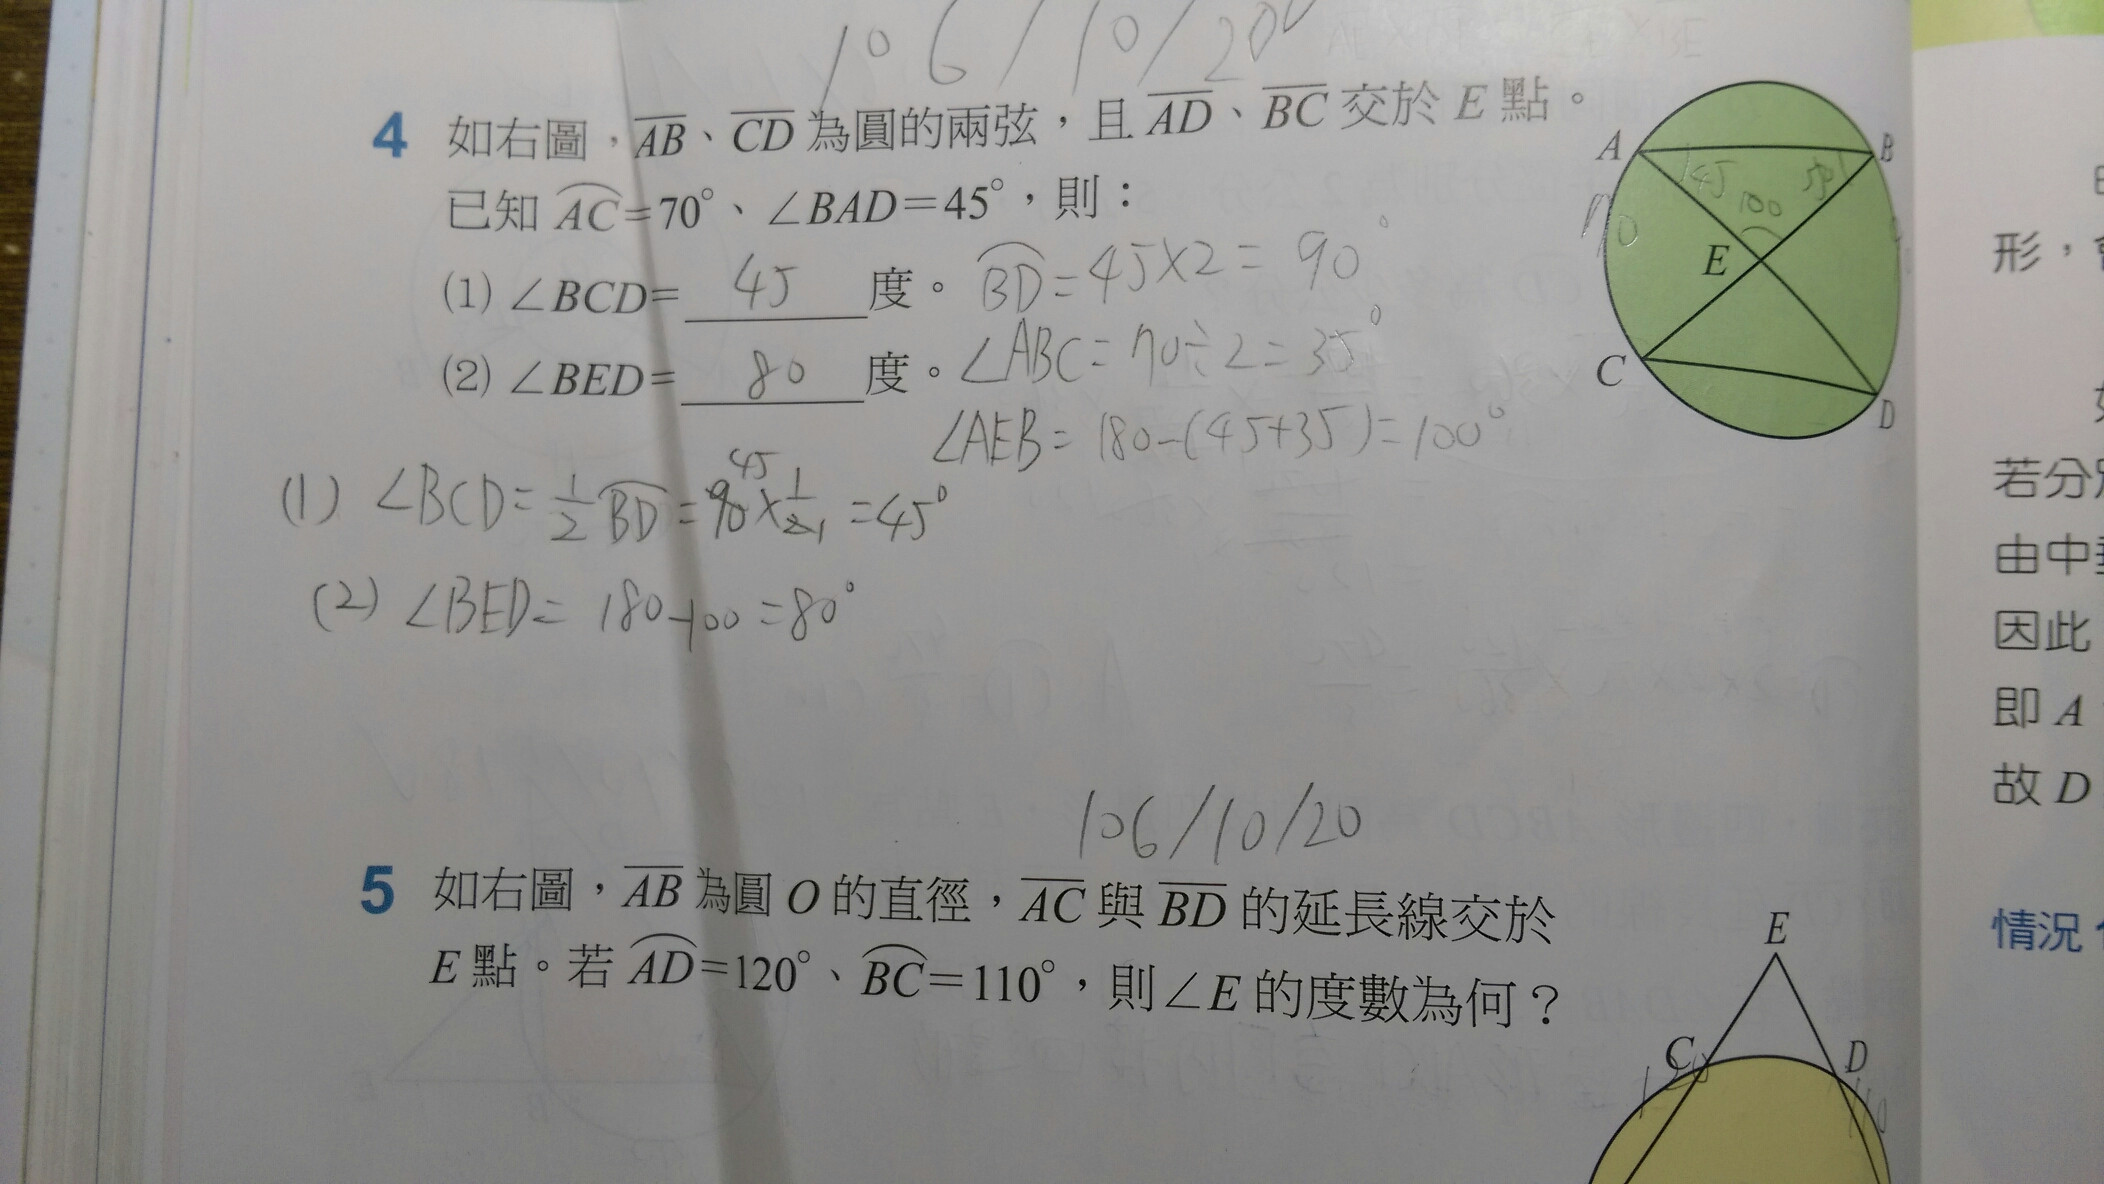 106/10/20
4 如右圖，AB、CD為圓的兩弦，且AD、BC交於E點。
已知AC=70°、∠BAD=45°，則：
(1) ∠BCD= 45 度。 BD=45×2=90°
(2) ∠BED= 80 度。 ∠ABC=70÷2=35°
∠AEB=180-(45+35)=100°
(1) ∠BCD=1/2 BD=90 45 ×1/2 1 =45°
(2) ∠BED=180-100=80°
A
B
45
100
70
E
C
D
106/10/20
5 如右圖，AB為圓O的直徑，AC與BD的延長線交於
E點。若AD=120°、BC=110°，則∠E的度數為何？
E
C
D
形，
若分
由中
因此
即A
故D
情況